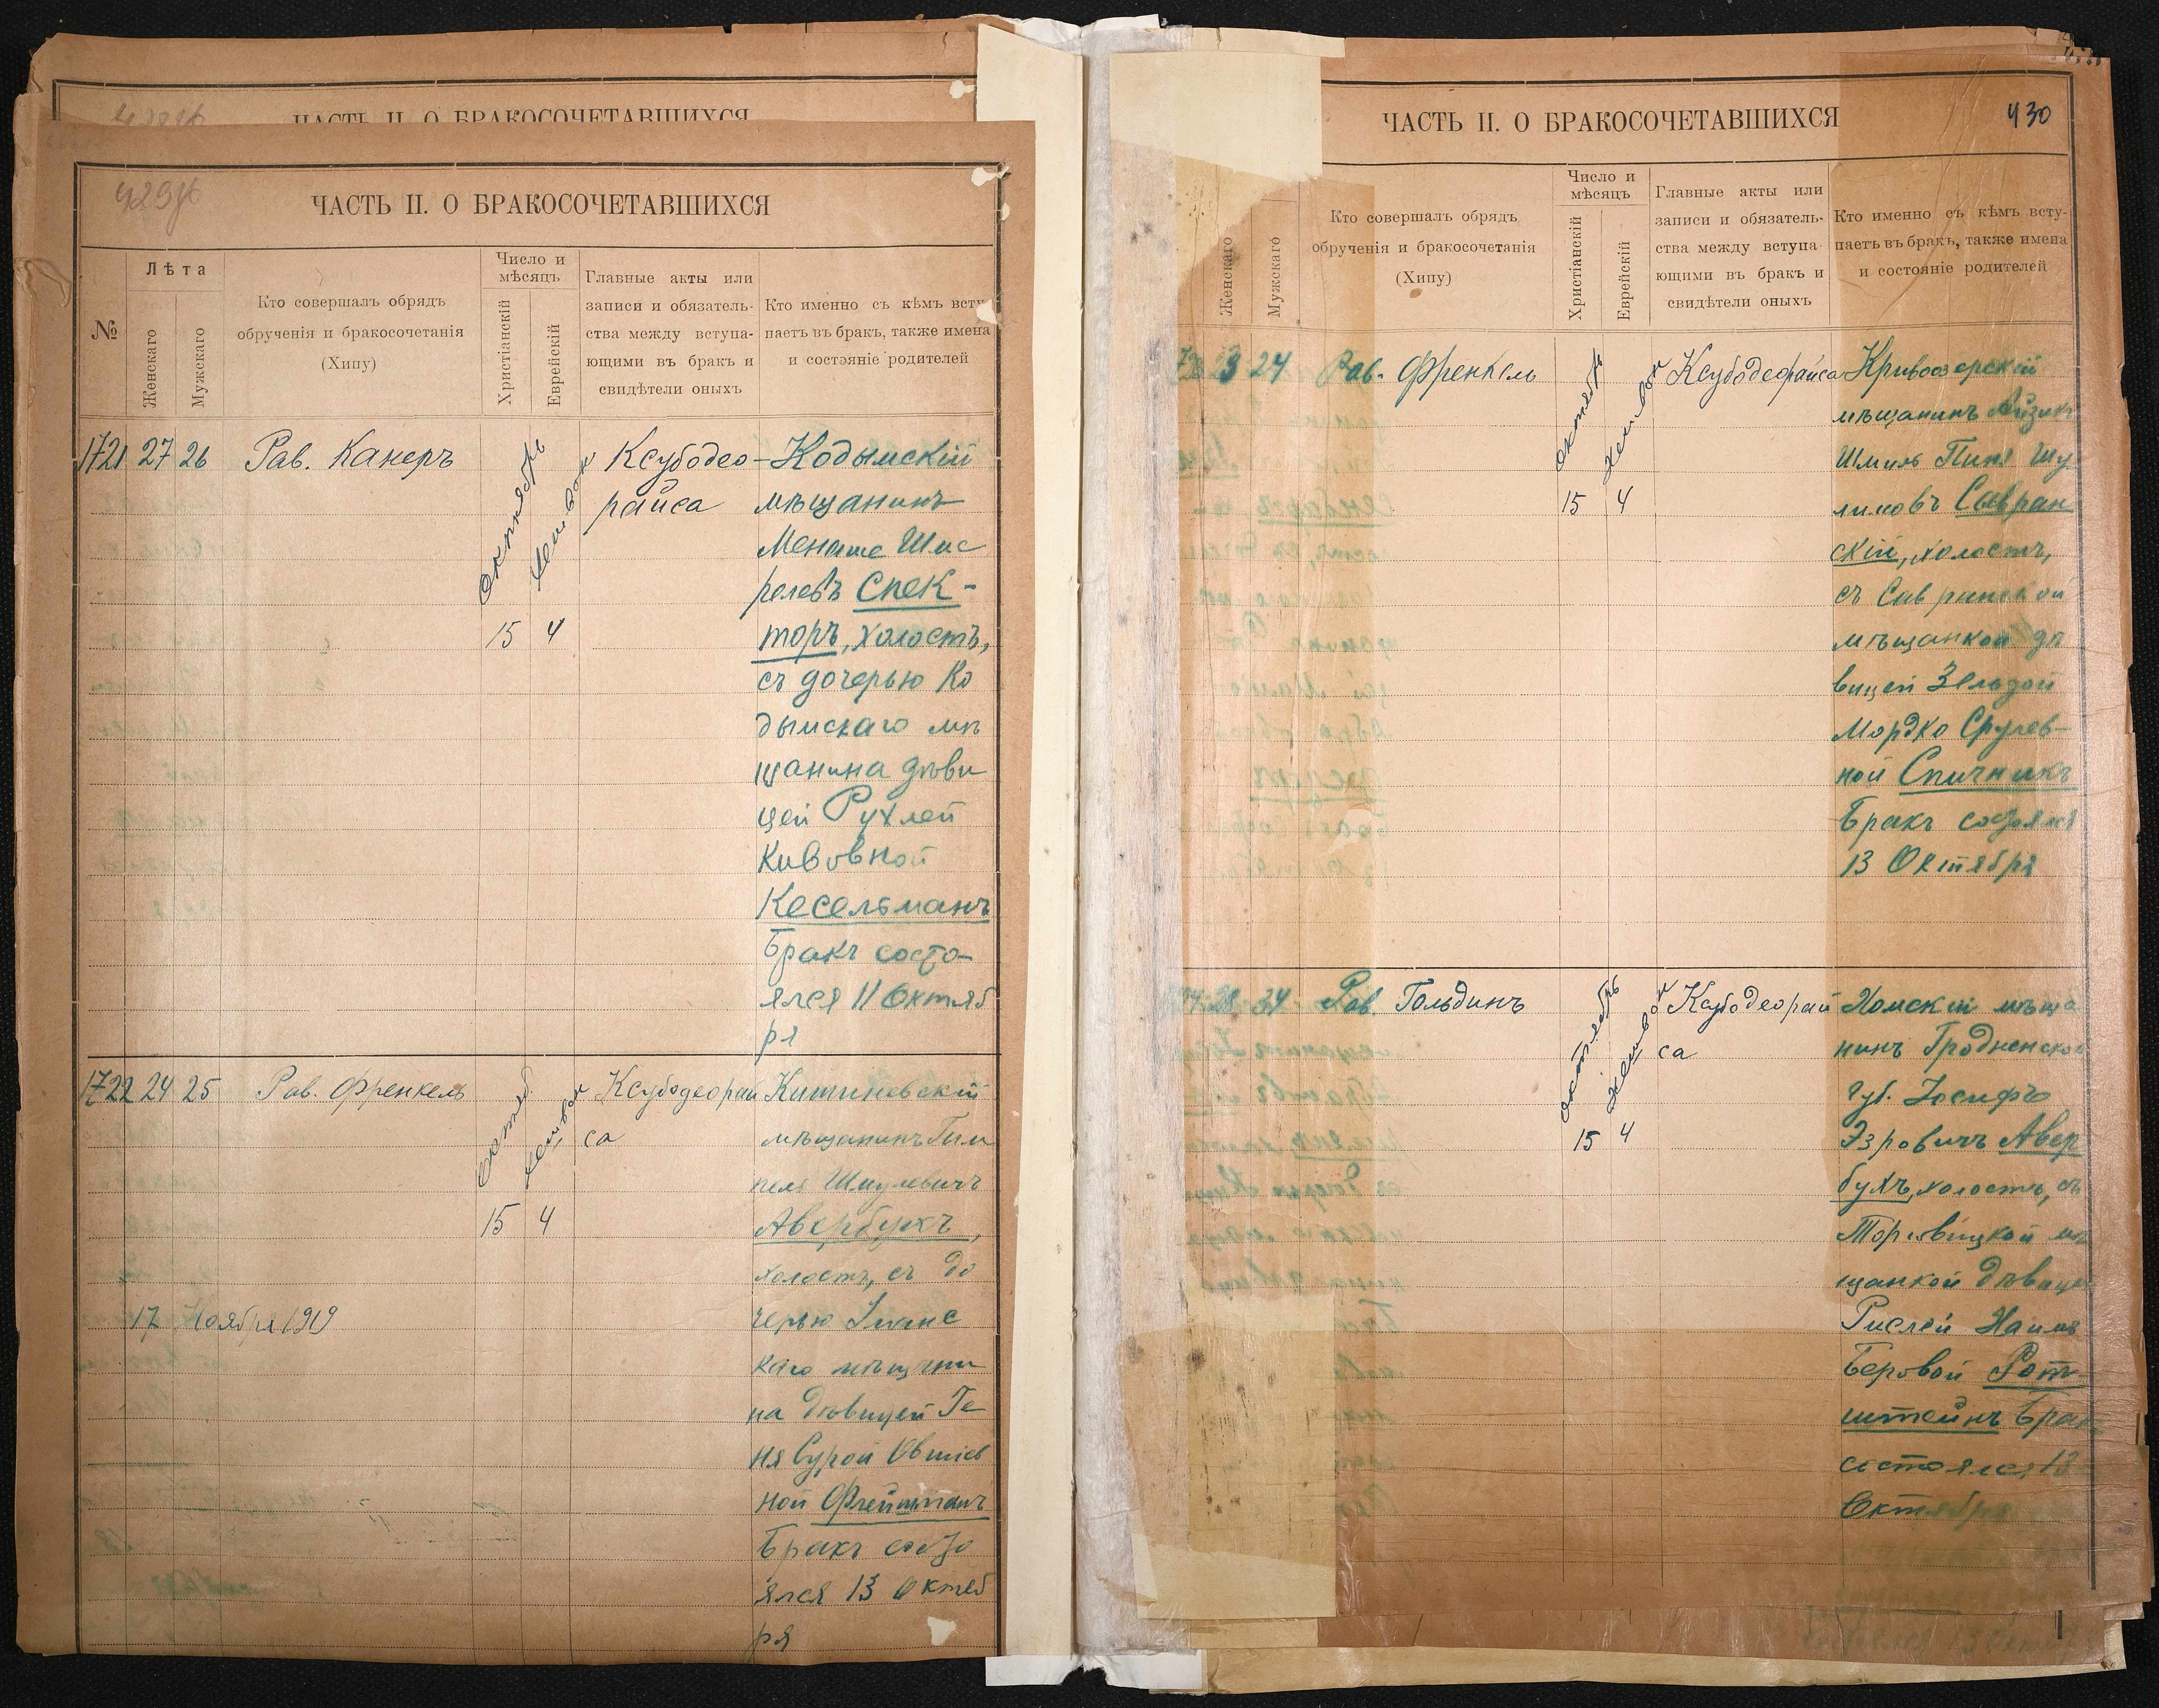 ЧАСТЬ II. О БРАКОСОЧЕТАВШИХСЯ
ЧАСТЬ II. О БРАКОСОЧЕТАВШИХСЯ
№
Лѣта
Женскаго
Мужскаго
Кто совершалъ обрядъ
обрученія и бракосочетанія
(Хипу)
Число и
мѣсяцъ
Христіанскій
Еврейскій
Главные акты или
записи и обязатель-
ства между вступа-
ющими въ бракъ и
свидѣтели оныхъ
Кто именно съ кѣмъ всту-
паетъ въ бракъ, также имена
и состояніе родителей
1721 27 26 Рав. Канеръ
Октябрь
Хешвон
15 4
Ксубодео-
райса
Кодымскій
мѣщанинъ
Менаше Шмс
релевъ Спек-
торъ, холостъ,
съ дочерью Ко
дымскаго мѣ
щанина дѣви
цей Рухлей
Кивовной
Кесельманъ
Бракъ состо-
ялся 11 Октяб
ря
1722 24 25 Рав. Френкель
Октяб
Хешвон
15 4
Ксубодеорай
са
Кишиневскій
мѣщанинъ Гим
пель Шмулевичъ
Авербухъ,
холостъ, съ до
черью
каго мѣщани
на дѣвицей Ге
ня Сурой Овшіев
ной Флейшманъ
Бракъ состо
ялся 13 Октяб
ря
17 Ноября 1919
ЧАСТЬ II. О БРАКОСОЧЕТАВШИХСЯ
430
Женскаго
Мужскаго
Кто совершалъ обрядъ
обрученія и бракосочетанія
(Хипу)
Число и
мѣсяцъ
Христіанскій
Еврейскій
Главные акты или
записи и обязатель-
ства между вступа-
ющими въ бракъ и
свидѣтели оныхъ
Кто именно съ кѣмъ всту-
паетъ въ бракъ, также имена
и состояніе родителей
23 24 Рав. Френкель
Октябрь
Хешвон
15 4
Ксубодеорайса
Кривоозерскій
мѣщанинъ Айзикъ
Шмиль Пиня Шу
лимовъ Савран
скій, холостъ,
съ Савранской
мѣщанкой дѣ
вицей Зельдой
Мордко Срулев-
ной Спичникъ
Бракъ состоялся
13 Октября
28 34 Рав. Гольдинъ
Октябрь
Хешвон
15 4
Ксубодеорай
са
Хомскій мѣща
нинъ Гродненской
Губ. Іосифъ
Эзровичъ Авер
бухъ, холостъ, съ
Торговицкой мѣ
щанкой дѣвицей
Рислей Наимъ
Беровой Рот
штейнъ Бракъ
состоялся 13
Октября